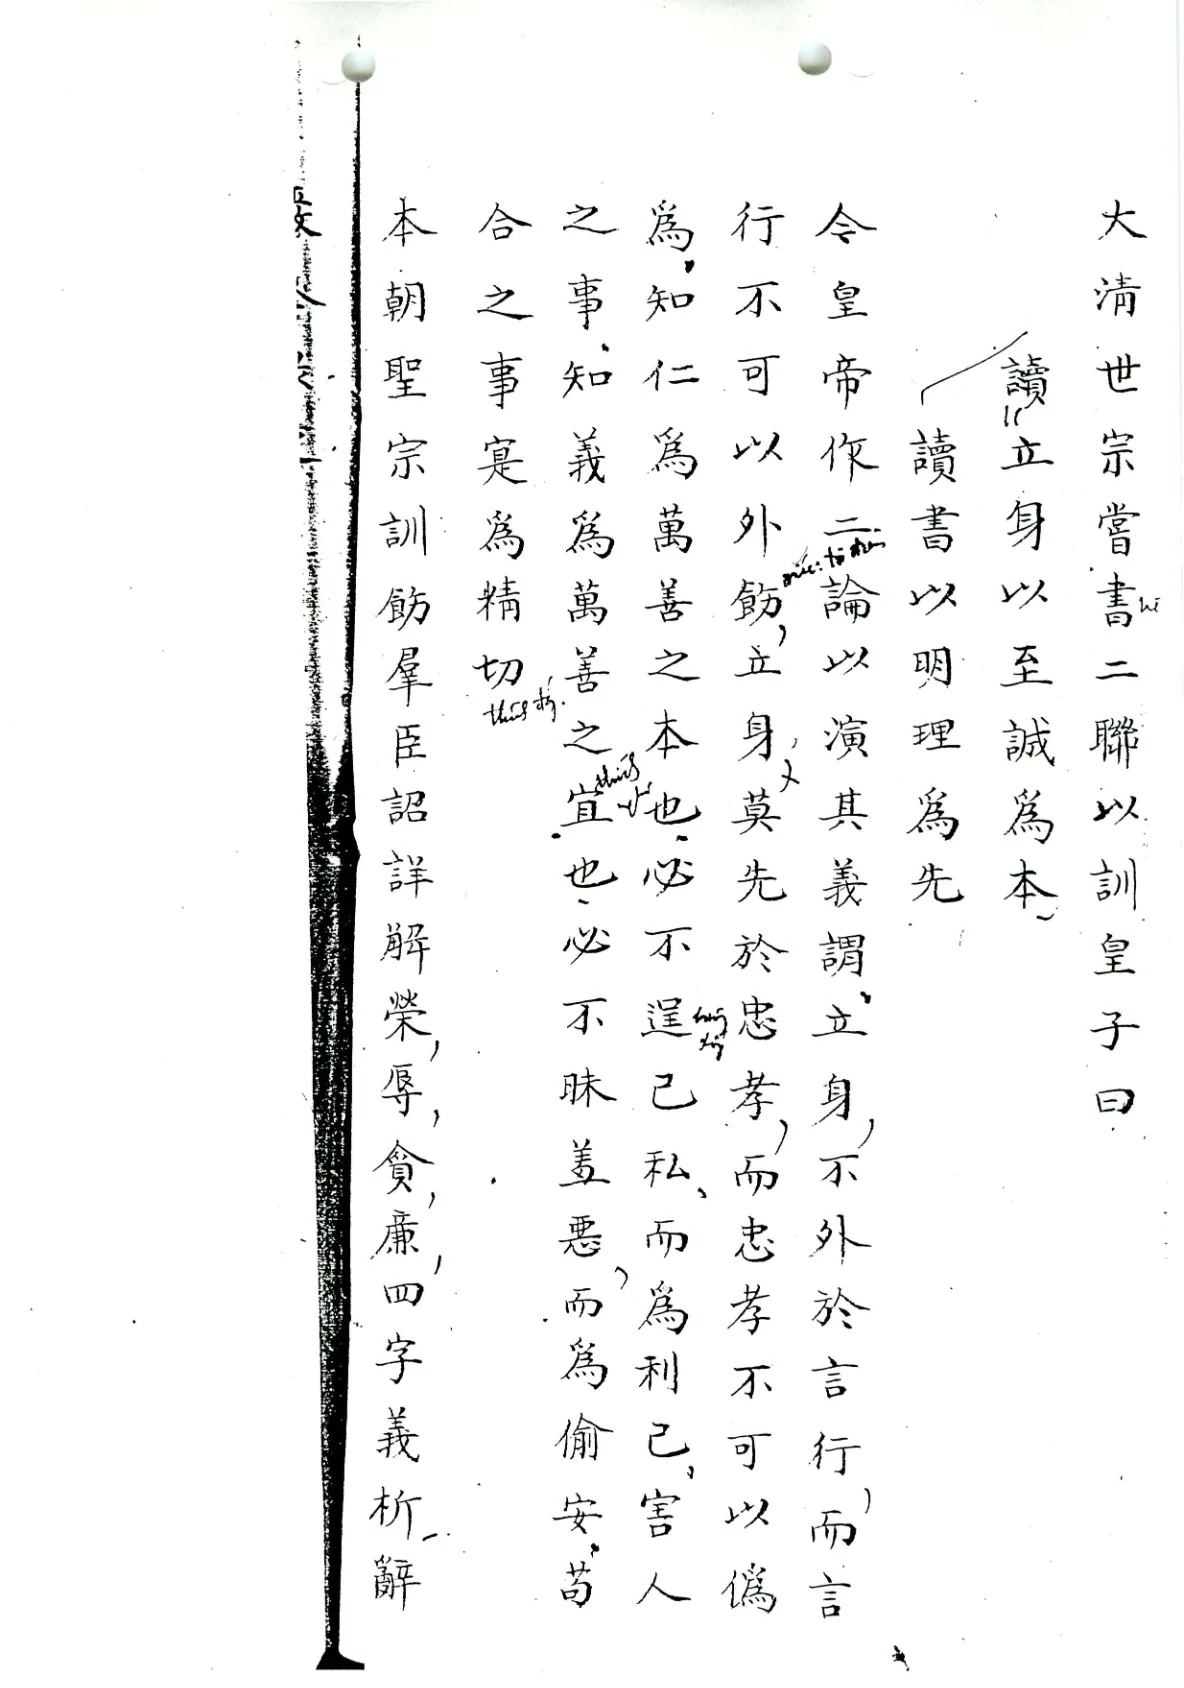 大清世宗嘗書二聯以訓皇子曰
讀立身以至誠為本
讀書以明理為先
令皇帝作二論以演其義謂立身不外於言行而言
行不可以外飭立身莫先於忠孝而忠孝不可以偽
為知仁為萬善之本也必不逞己私而為利己害人
之事知義為萬善之宜也必不昧羞惡而為偷安苟
合之事寔為精切
本朝聖宗訓飭羣臣詔詳解榮辱貪廉四字義析辭